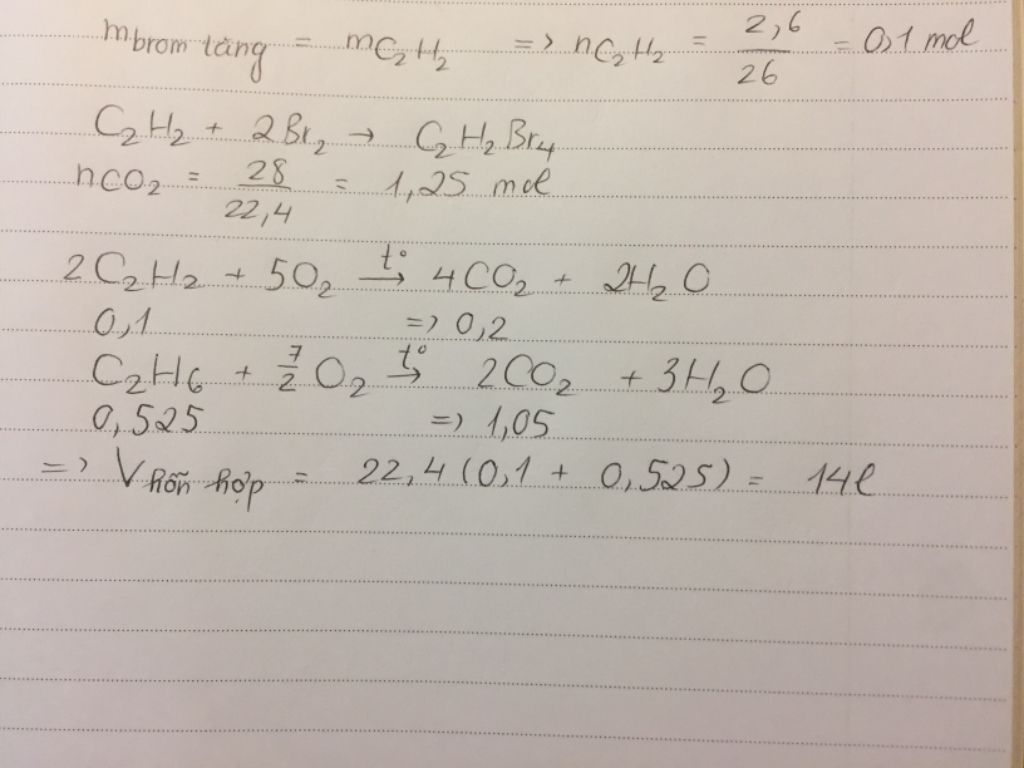 m brom tăng = mC₂H₂ => nC₂H₂ = 2,6/26 = 0,1 mol
C₂H₂ + 2Br₂ → C₂H₂Br₄
nCO₂ = 28/22,4 = 1,25 mol
2C₂H₂ + 5O₂ →(t°) 4CO₂ + 2H₂O
0,1 => 0,2
C₂H₆ + 7/2 O₂ →(t°) 2CO₂ + 3H₂O
0,525 => 1,05
=> V hỗn hợp = 22,4(0,1 + 0,525) = 14l